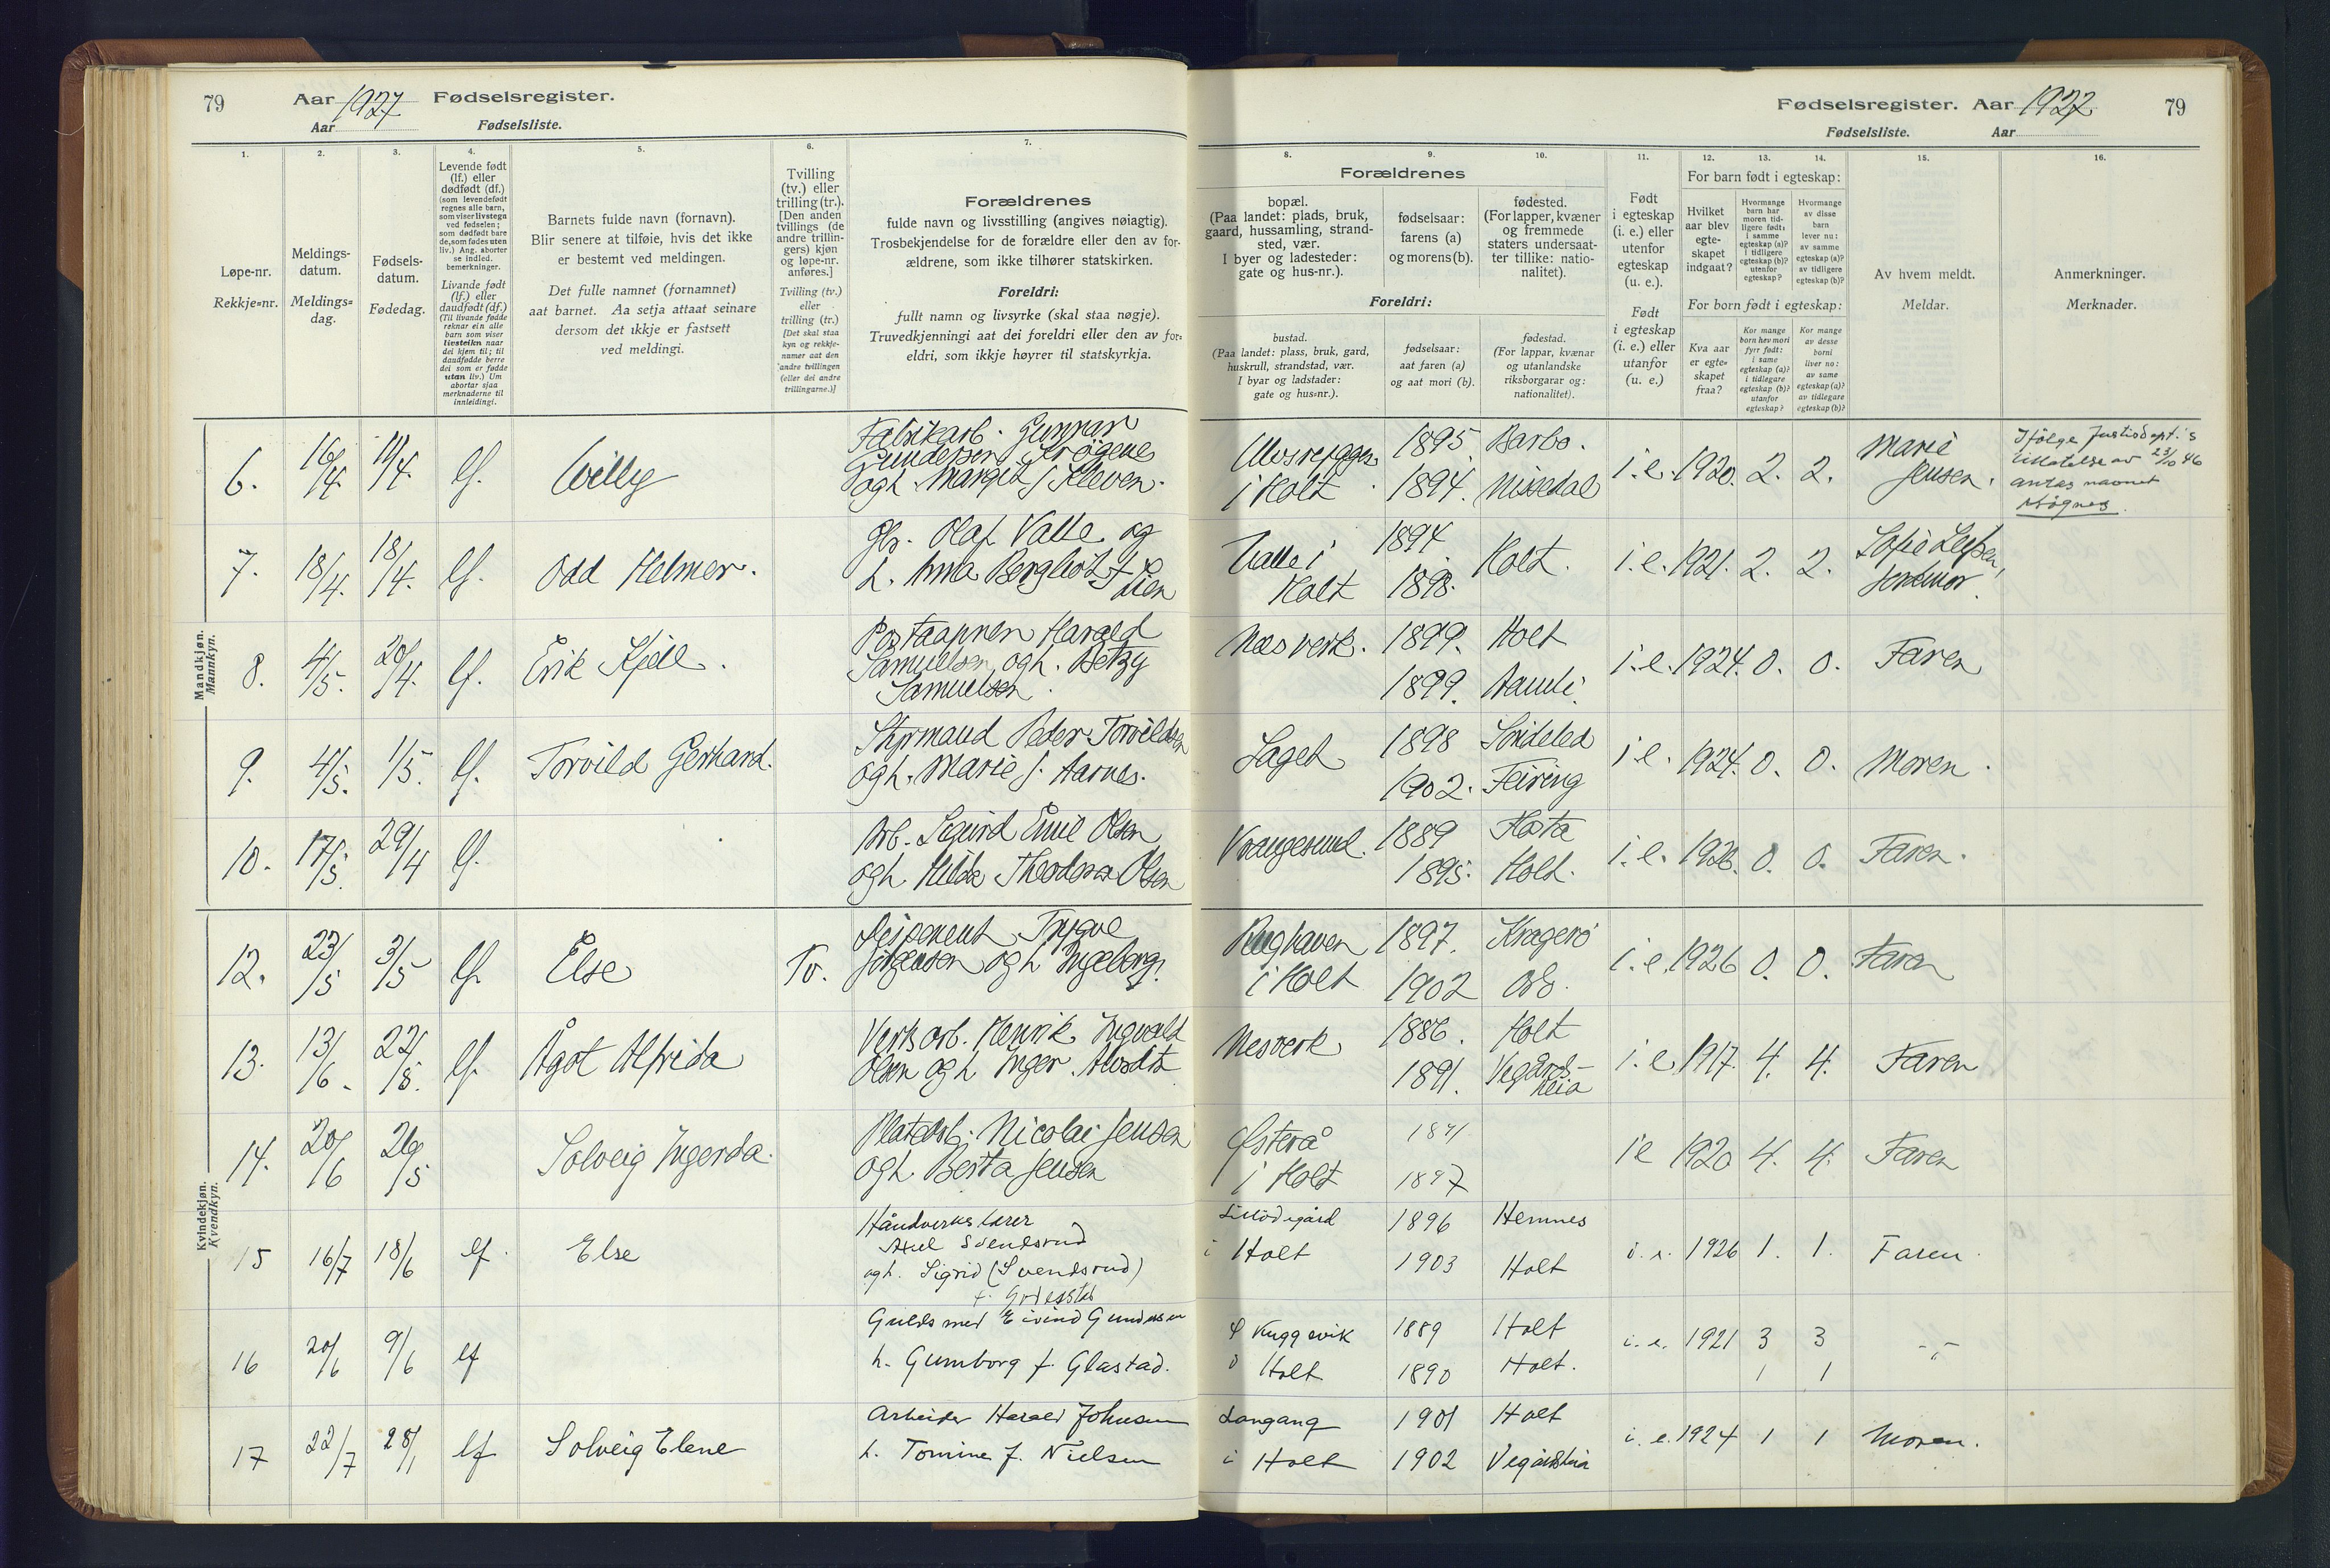 79 Aar 1927 Fødselsregister.
Aar Fødselsliste.
Fødselsregister. Aar 1927 79
Fødselsliste. Aar
1. 2. 3. 4. 5. 6. 7.
Løpe-nr.
Rekkje=nr.
Meldings-
datum.
Meldings=
dag.
Fødsels-
datum.
Fødedag.
Levende født
(lf.) eller
dødfødt (df.)
(som levendefødt
regnes alle barn,
som viser livstegn
ved fødselen;
som dødfødt bare
de, som fødes uten
liv.) Ang. aborter
se indled.
bemerkninger.
Livande født
(lf.) eller
daudfødt (df.)
(Til livande fødde
reknar ein alle
barn som viser
livsteikn naar
dei kjem til; til
daudfødde berre
dei som er fødde
utan liv.) Um
abortar sjaa
merknaderne til
innleidingi.
Barnets fulde navn (fornavn).
Blir senere at tilføie, hvis det ikke
er bestemt ved meldingen.
Det fulle namnet (fornamnet)
aat barnet. Aa setja attaat seinare
dersom det ikkje er fastsett
ved meldingi.
Tvilling
(tv.) eller
trilling (tr.).
[Den anden
tvillings (de
andre trillin-
gers) kjøn
og løpe-nr.
anføres.]
Tvilling (tv.)
eller
trilling (tr.)
[Det skal staa
kyn og rekkje-
numer aat den
andre tvillingen
(eller dei andre
trillingarne.)]
Forældrenes
fulde navn og livsstilling (angives nøiagtig).
Trosbekjendelse for de forældre eller den av for-
ældrene, som ikke tilhører statskirken.
Foreldri:
fullt namn og livsyrke (skal staa nøgje).
Truvedkjenningi aat dei foreldri eller den av for=
eldri, som ikkje høyrer til statskyrkja.
8. 9. 10. 11. 12. 13. 14. 15. 16.
Forældrenes
bopæl.
(Paa landet: plads, bruk,
gaard, hussamling, strand-
sted, vær.
I byer og ladesteder:
gate og hus-nr.).
fødselsaar:
farens (a)
og morens (b).
fødested.
(For lapper, kvæner
og fremmede
staters undersaat-
ter tillike: natio-
nalitet).
Foreldri:
bustad.
(Paa landet: plass, bruk, gard,
huskrull, strandstad, vær.
I byar og ladstader:
gate og hus=nr.).
fødselsaar:
aat faren (a)
og aat mori (b).
fødestad.
(For lappar, kvænar
og utanlandske
riksborgarar og:
nationalitet).
Født
i egteskap
(i. e.) eller
utenfor
egteskap
(u. e.).
Født
i egteskap
(i. e.) eller
utanfor
(u. e.)
For barn født i egteskap:
Hvilket
aar blev
egte-
skapet
indgaat?
Hvormange
barn har
moren tid-
ligere født:
i samme
egteskap (a)?
i tidligere
egteskap (b)?
utenfor
egteskap?
Hvormange
av disse
barn
lever nu:
av samme
egteskap (a)?
av tidligere
egteskap (b)?
For born født i egteskap:
Kva aar
er egte-
skapet
fraa?
Kor mange
born hev mori
fyrr født:
i same
egteskap (a)?
i tidlegare
egteskap (b)?
utanfor
egteskap?
Kor mange
av desse
borni
liver no:
av same
egteskap (a)?
av tidlegare
egteskap (b)?
Av hvem meldt.
Meldar.
Anmerkninger.
Merknader.
Mandkjøn.
Mannkyn.
6. 16/4. 14/4. lf. Willy
Fabrikarb. Gunnar
Gundersen Krøgene
og h. Margit f. Kleven.
i Holt
1895 Barbo.
1894. Nissedal
i. e. 1920. 2. 2. Marie
Jensen.
Ifølge Justisdept.'s
tillatelse av 23/10 46
antas navnet
7. 18/4. 18/4. lf. Odd Helmer.
Olaf Valle og
h. Anna Bergliot f.
Lien
Valle i
Holt
1894
1898.
Holt.
i. e. 1921. 2. 2. Sofie
jordmor.
8. 4/5. 20/4. lf. Erik Kjell.
Postaapner Harald
Samuelsen og h. Betzy
Samuelsen.
Næs verk. 1899. Holt
1899. Aamli.
i. e. 1924. 0. 0. Faren
9. 4/5. 1/5. lf. Torvild Gerhard.
Styrmand Peder Torvildsen
og h. Marie f. Aarnes.
Laget 1898 Søndeled
1902. Feiring
i. e. 1924. 0. 0. Moren.
10. 17/5. 29/4 lf.
Arb. Sigurd Emil Olsen
og h. Hilda Theodora Olsen
Vrangesund. 1889 Flosta
1895. Holt.
i. e. 1926. 0. 0. Faren.
Kvindekjøn.
Kvendkyn.
12. 23/5 3/5 lf. Else Tv.
Disponent Trygve
Jørgensen og h. Ingeborg.
i Holt
1897. Kragerø
1902 Oslo.
i. e. 1926 0. 0. Faren
13. 13/6. 22/5. lf. Ågot Alfrida
Verksarb. Henrik Ingvald
Olsen og h. Inger
Nesverk 1886. Holt
1891. Vegårds-
heia
i. e. 1917. 4. 4. Faren
14. 20/6 26/5 Solveig Ingerda.
Nicolai Jensen
og h. Berta Jensen
Østerå
i Holt
1897
i e 1920 4. 4. Faren
15 16/7 18/6 lf. Else
Håndverkslærer
Axel Svendsrud
og h. Sigrid (Svendsrud)
i Holt
1896 Hemnes
1903 Holt
i. e. 1926 1. 1. Faren.
16 20/6 9/6 lf
Gullsmed Eivind Gundersen
h. Gumborg f. Glastad.
i Holt
1889 Holt
1890 Holt.
i. e. 1921 3 3 -"-
1 1
17 22/7 28/1 lf Solveig Elene
Arbeider Harald Johnsen
h. Tomine f. Nielsen
Langang
i Holt
1901 Holt
1902 Vegårdsheia
i. e. 1924 1 1 Moren.